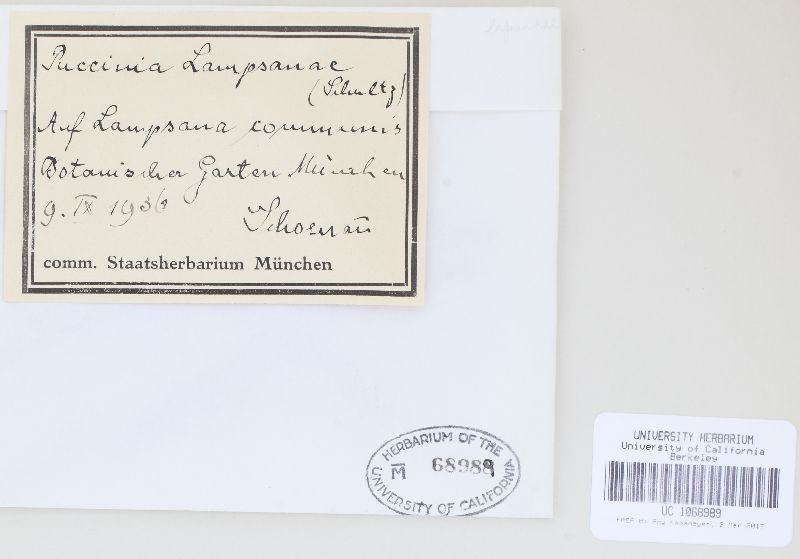 Puccinia Lampsanae
(Schultz)
Auf Lampsana communis
Botanischer Garten München
9. IX 1936
Schoenau
comm. Staatsherbarium München
HERBARIUM OF THE
M 68989
UNIVERSITY OF CALIFORNIA
UNIVERSITY HERBARIUM
University of California
Berkeley
UC 1068989
2 Mar 2017